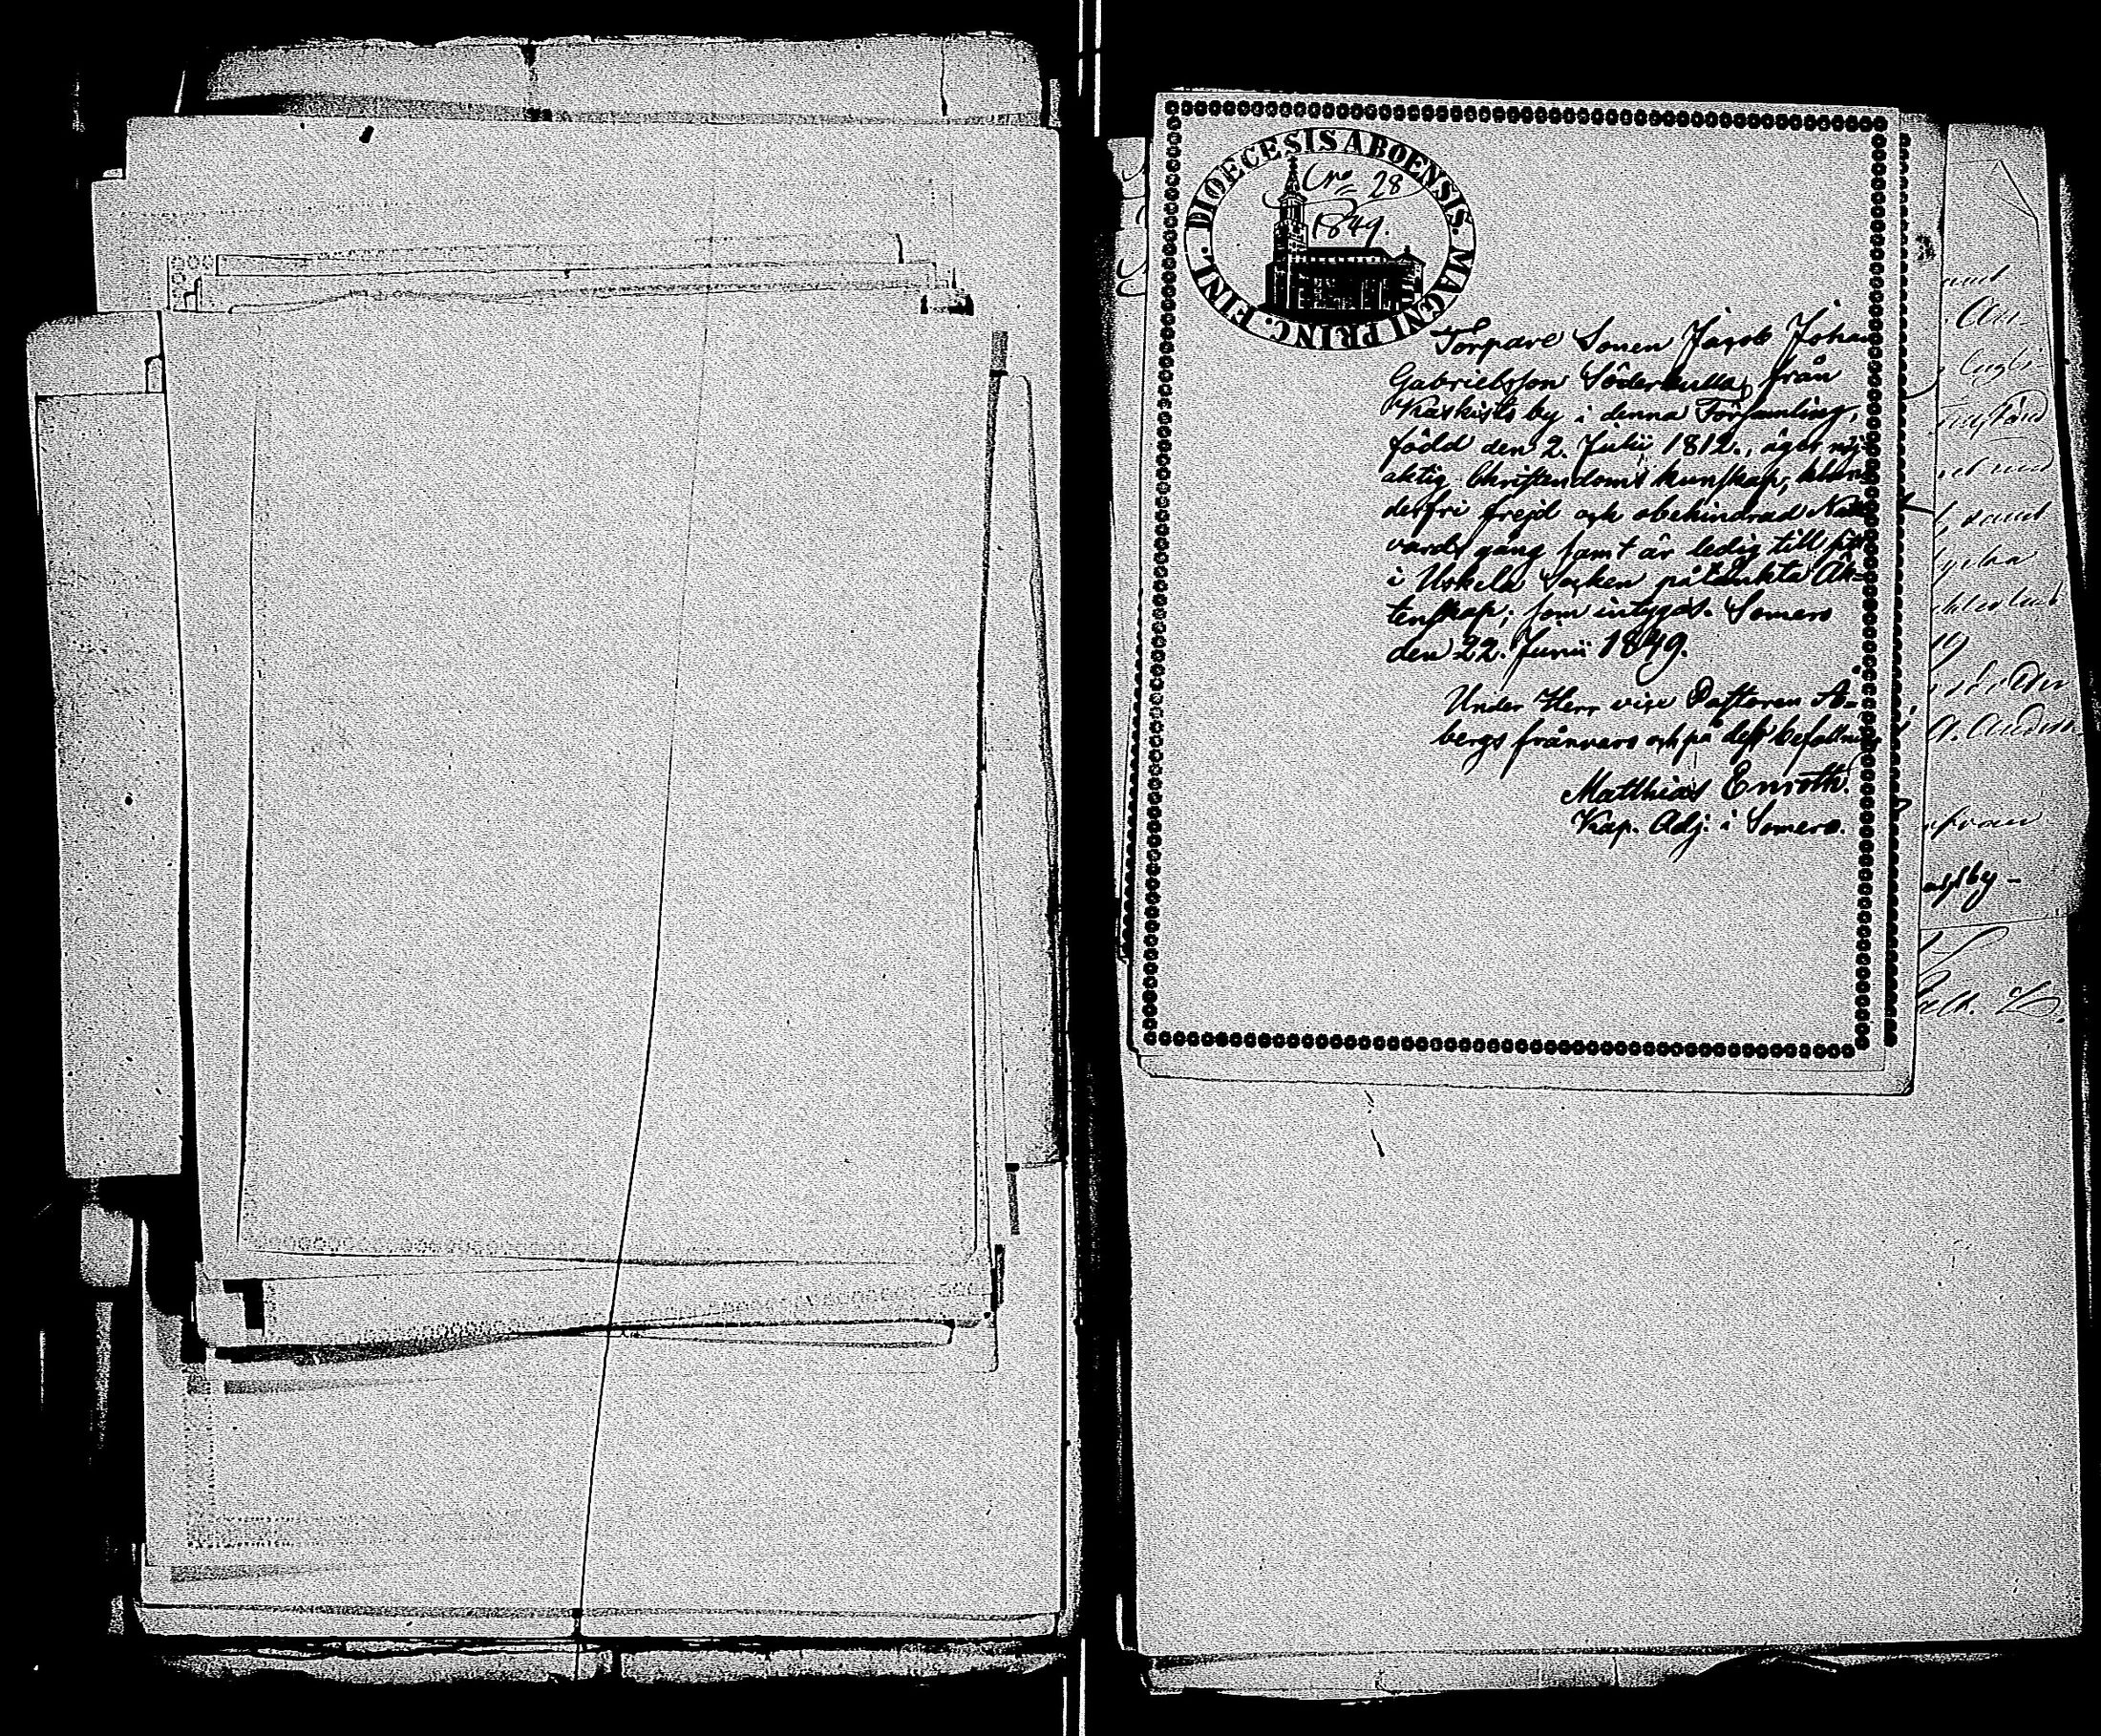 DIOECESIS ABOENSIS. MAGNI PRINC. FINL.
Nro 28
1849.
Torpare Sonen Jacob Johan
Gabrielsson Söderkulla, från
Kaskisto by i denna Församling,
född den 2. Julii 1812., äger nöj
aktig Christendoms kunskap, klan
derfri frejd och obehindrad Natt
vards gång samt är ledig till
i Uskela Socken påtänkta Äk-
tenskap; som intygas. Somero
den 22. Junii 1849.
Under Herr vice Pastoren Å-
bergs frånvaro och på dess befallning
Matthias Enroth.
Kap. Adj. i Somero.
samt